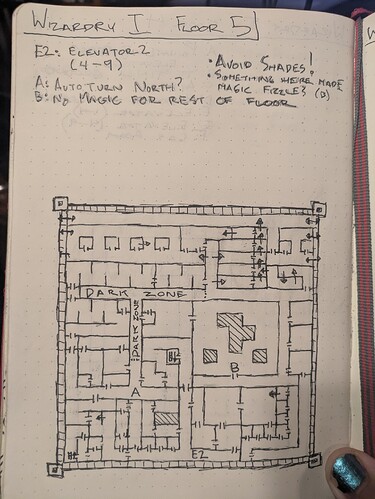 WIZARDRY I FLOOR 5
E2: ELEVATOR 2
(4-9)
• AVOID SHADES!
• SOMETHING HERE MADE
MAGIC FIZZLE? (B)
A: AUTO TURN NORTH?
B: NO MAGIC FOR REST OF FLOOR
DARK ZONE
DARK ZONE
B
A
E2